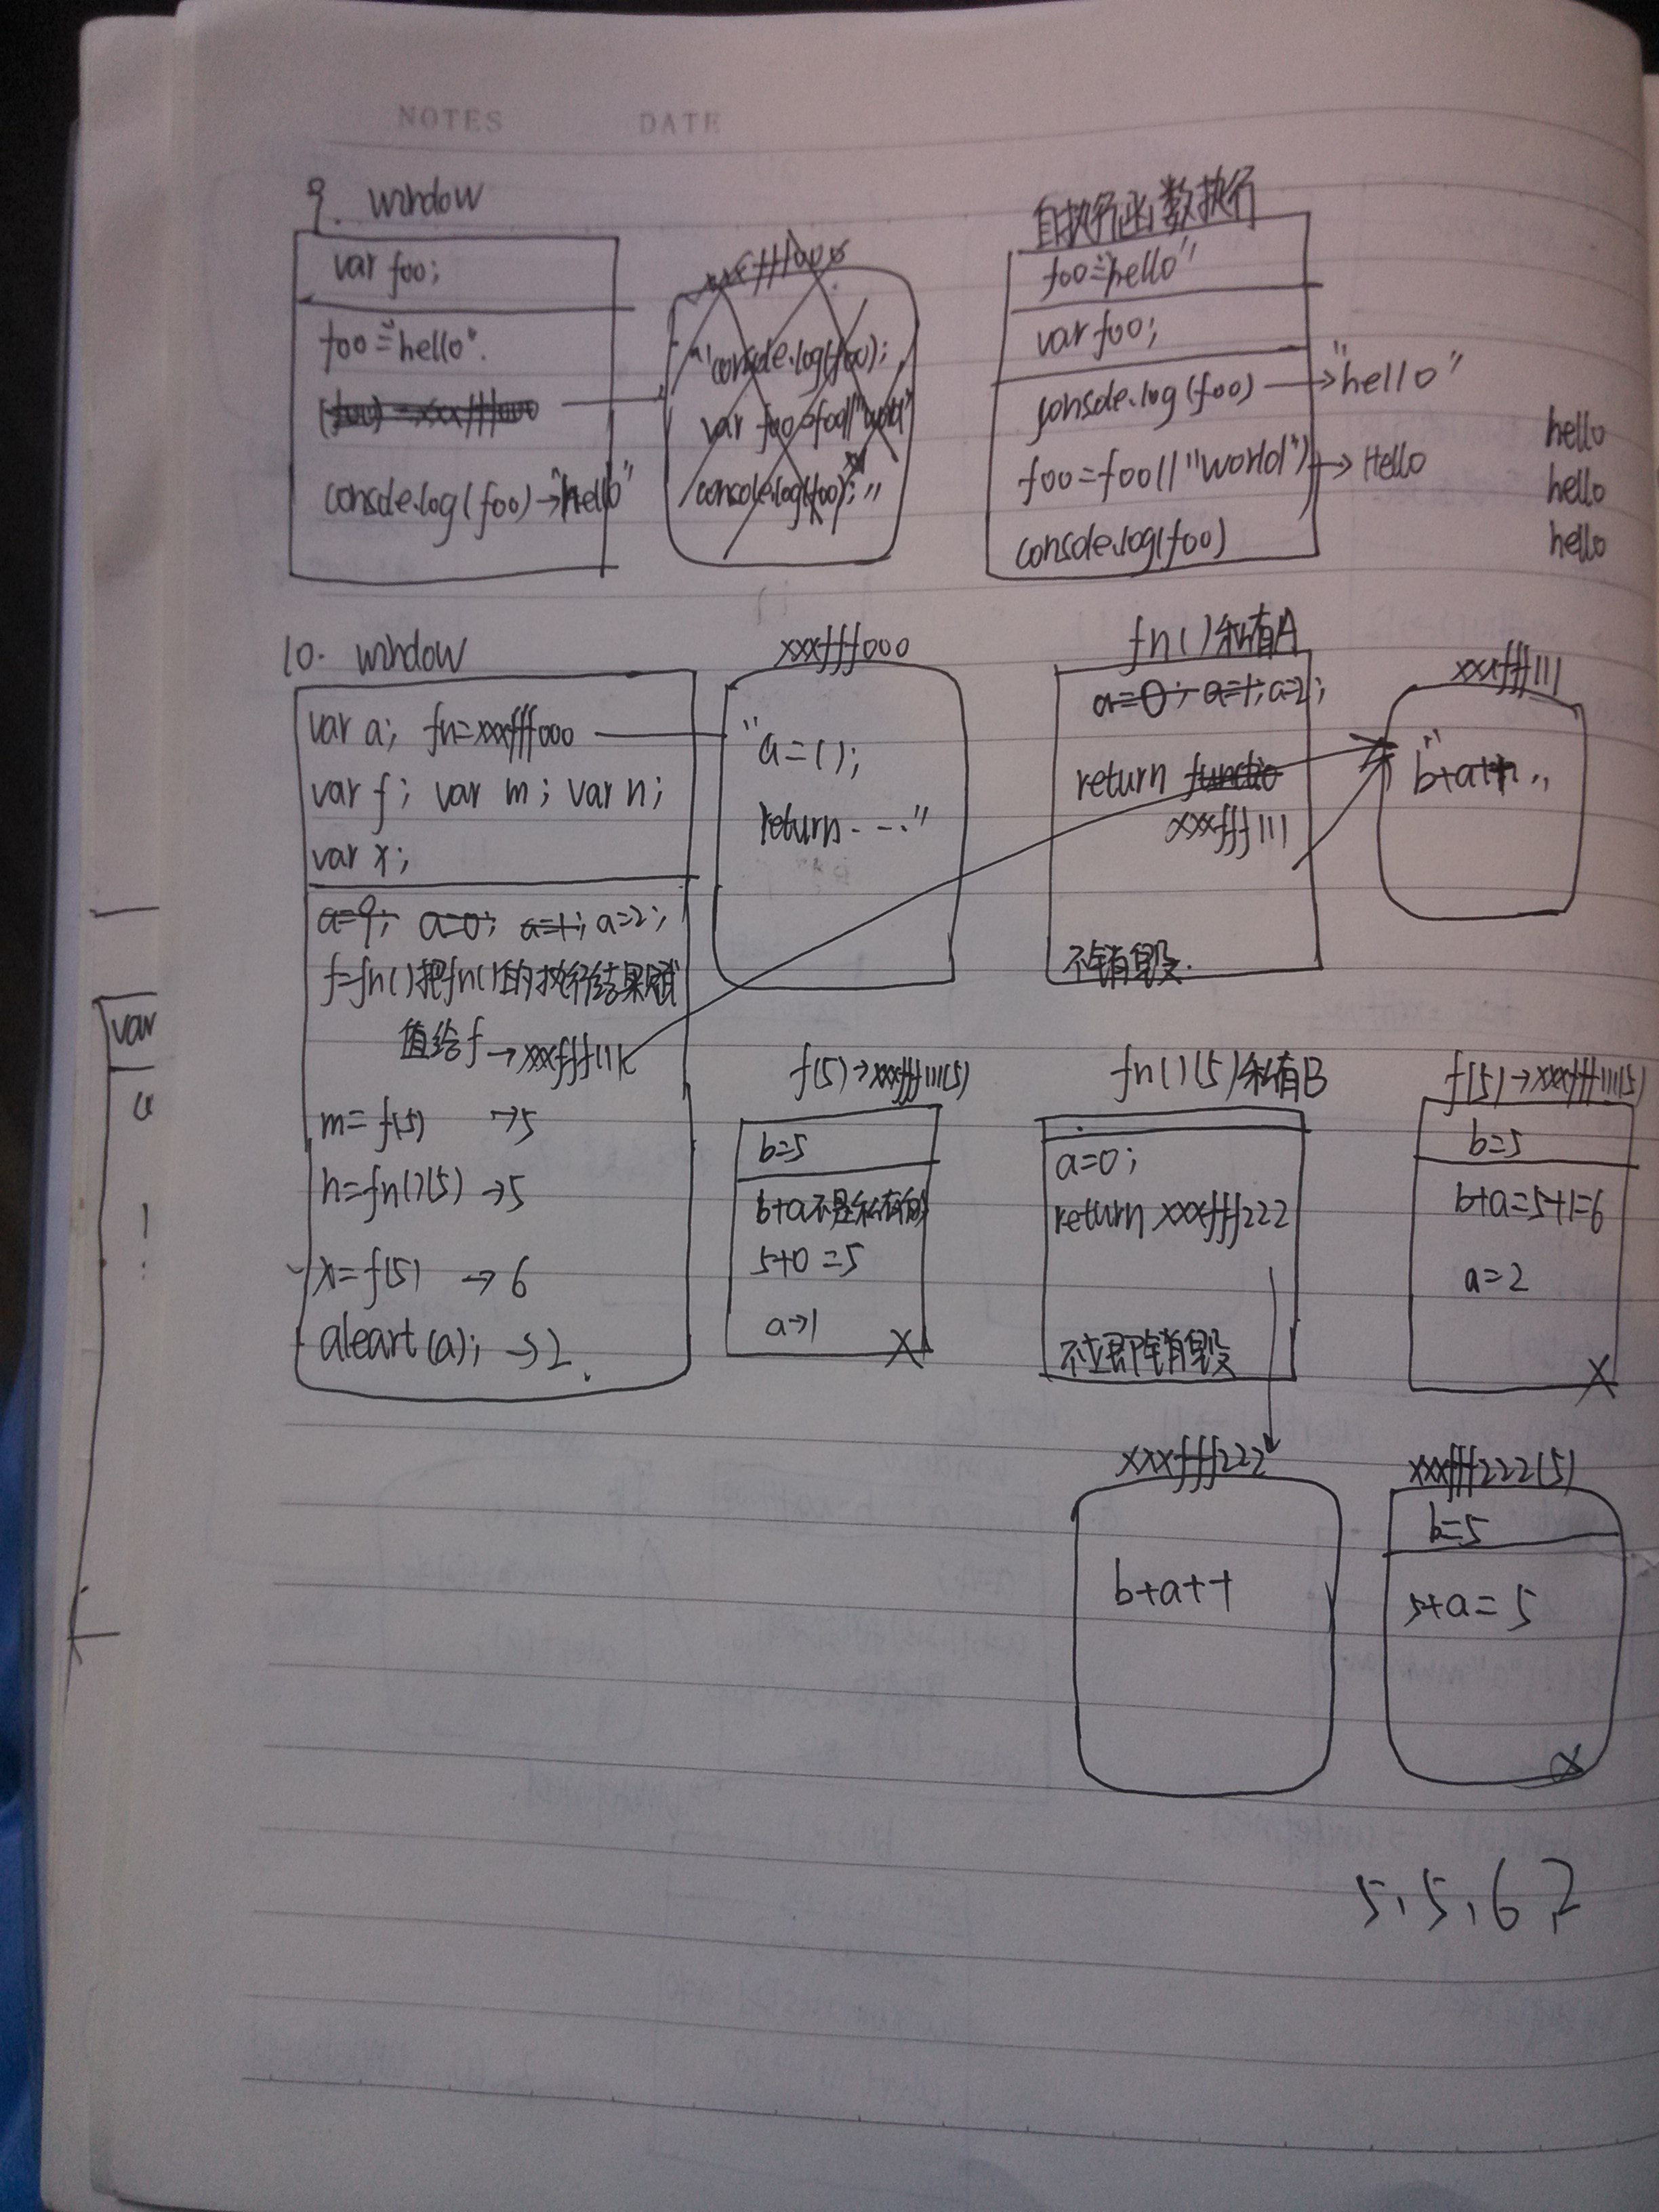 NOTES DATE
9. window
var foo;
foo="hello".
console.log(foo)→"hello"
xxxfff000
"console.log(foo);
var foo=foo||"world"
console.log(foo);"
自执行函数执行
foo="hello"
var foo;
console.log(foo)→"hello"
foo=foo||"world")→Hello
console.log(foo)
hello
hello
hello
10. window
var a; fn=xxxfff000
var f; var m; var n;
var x;
a=9; a=0; a=1; a=2;
f=fn()把fn()的执行结果赋
值给f→xxxfff111
m=f(5) →5
n=fn()(5) →5
x=f(5) →6
aleart(a); →2.
xxxfff000
"a=();
return..."
fn()私有A
a=0; a=1; a=2;
return functio
xxxfff111
不销毁.
xxxfff111
"b+a++"
f(5)→xxxfff111(5)
b=5
b+a不是私有的
5+0=5
a→1
X
fn()(5)私有B
a=0;
return xxxfff222
不立即销毁
f(5)→xxxfff111(5)
b=5
b+a=5+1=6
a=2
X
xxxfff222
b+a++
xxxfff222(5)
b=5
5+a=5
X
5,5,6,2
var